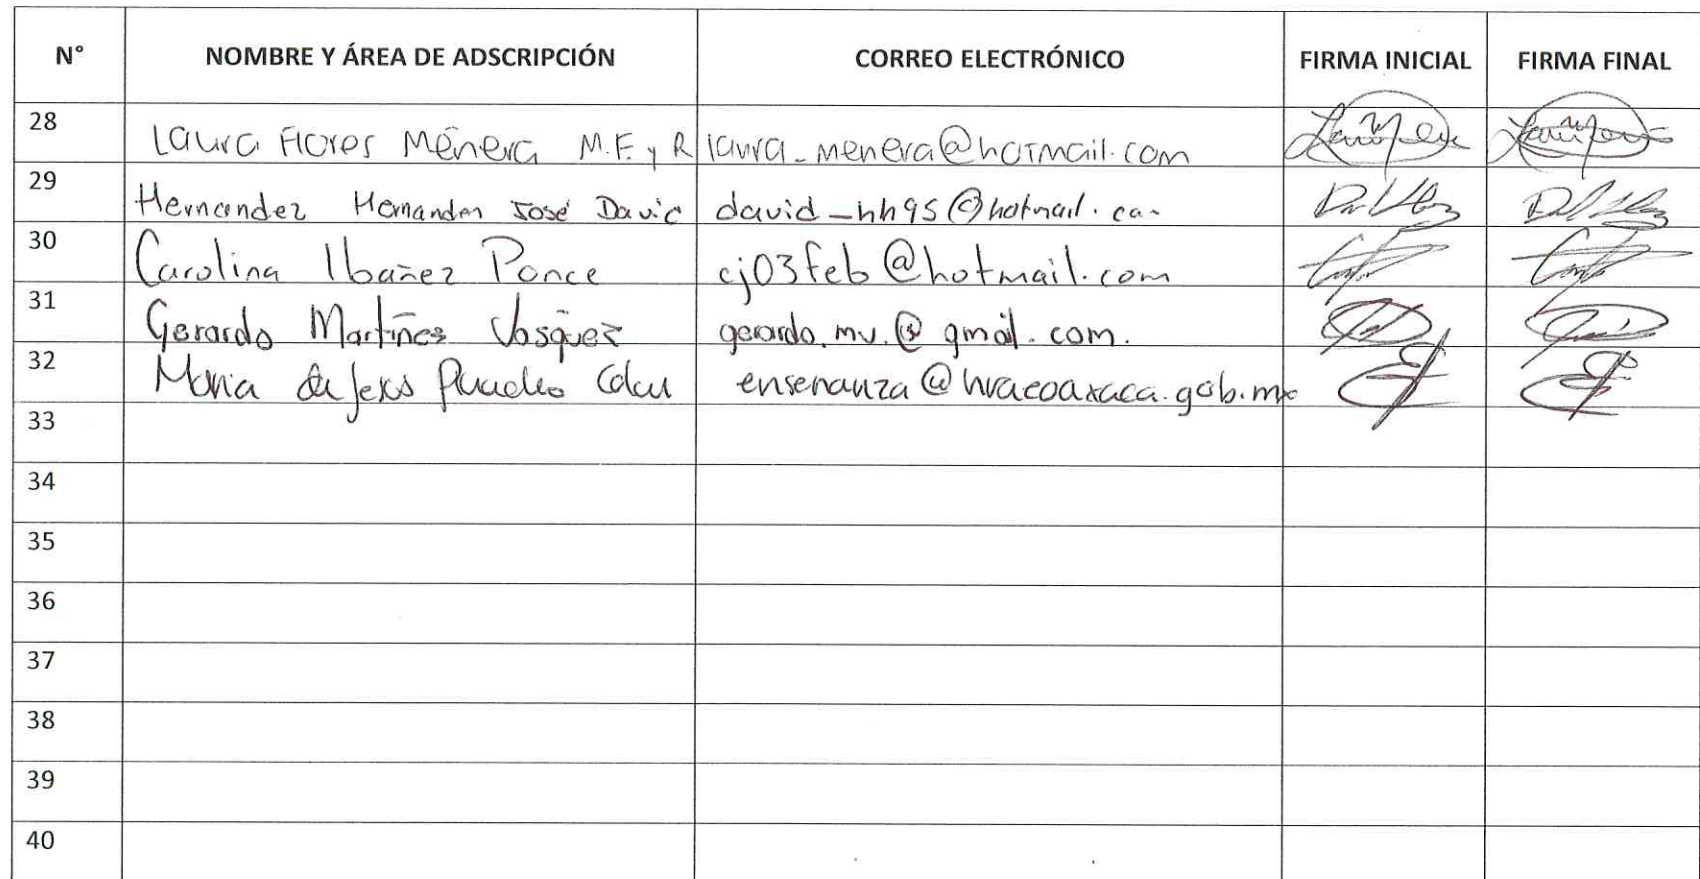 N° NOMBRE Y ÁREA DE ADSCRIPCIÓN CORREO ELECTRÓNICO FIRMA INICIAL FIRMA FINAL
28 Laura Flores Ménera M.F. y R laura_menera@hotmail.com
29 Hernandez Hernandez José David david_hh95@hotmail.com
30 Carolina Ibañez Ponce cj03feb@hotmail.com
31 Gerardo Martínez Vasquez gerardo.mv.@gmail.com.
32 Maria de Jesus ensenanza@hraeoaxaca.gob.mx
33
34
35
36
37
38
39
40